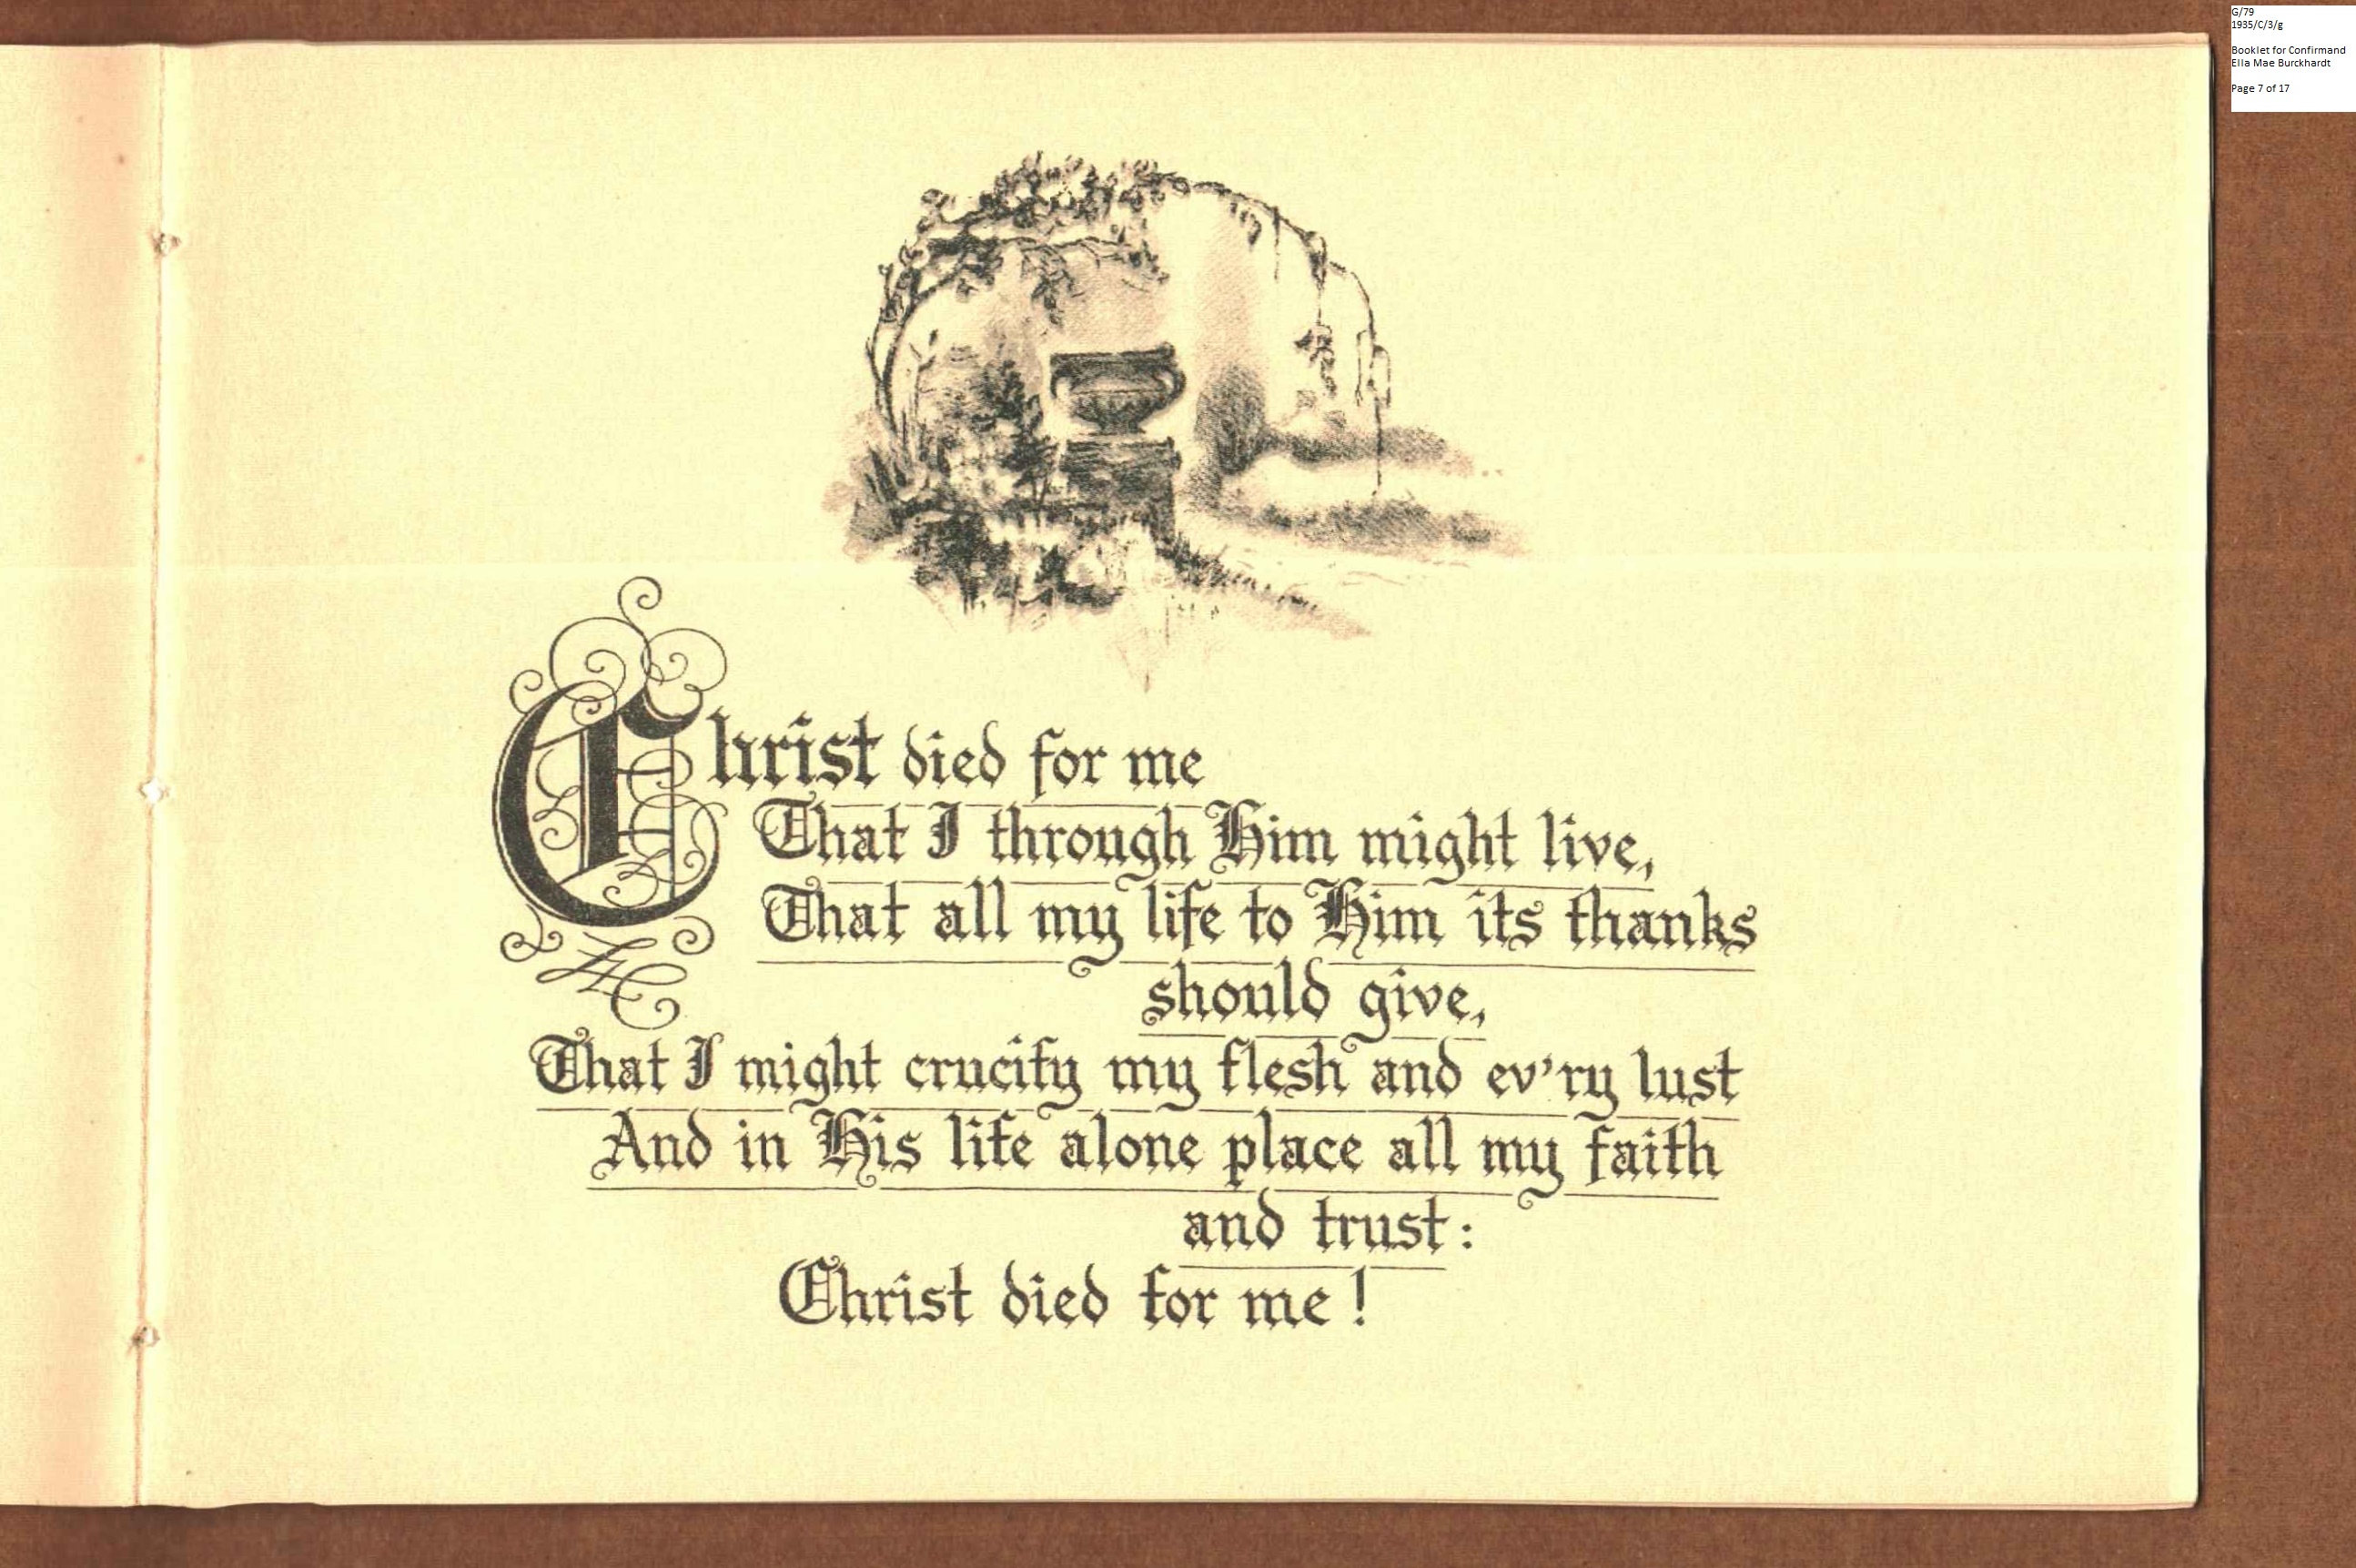 G/79
1935/C/3/g
Booklet for Confirmand
Ella Mae Burckhardt
Page 7 of 17
Christ died for me
That I through Him might live,
That all my life to Him its thanks
should give,
That I might crucify my flesh and ev'ry lust
And in His life alone place all my faith
and trust:
Christ died for me!